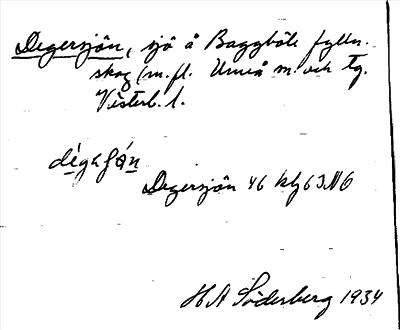 Degersjön, sjö å Baggböle fylln.
skog (m. fl. Umeå m. och tg.
Västerb. l.
Degersjön 46 klg 63 NO
H A Söderberg 1934